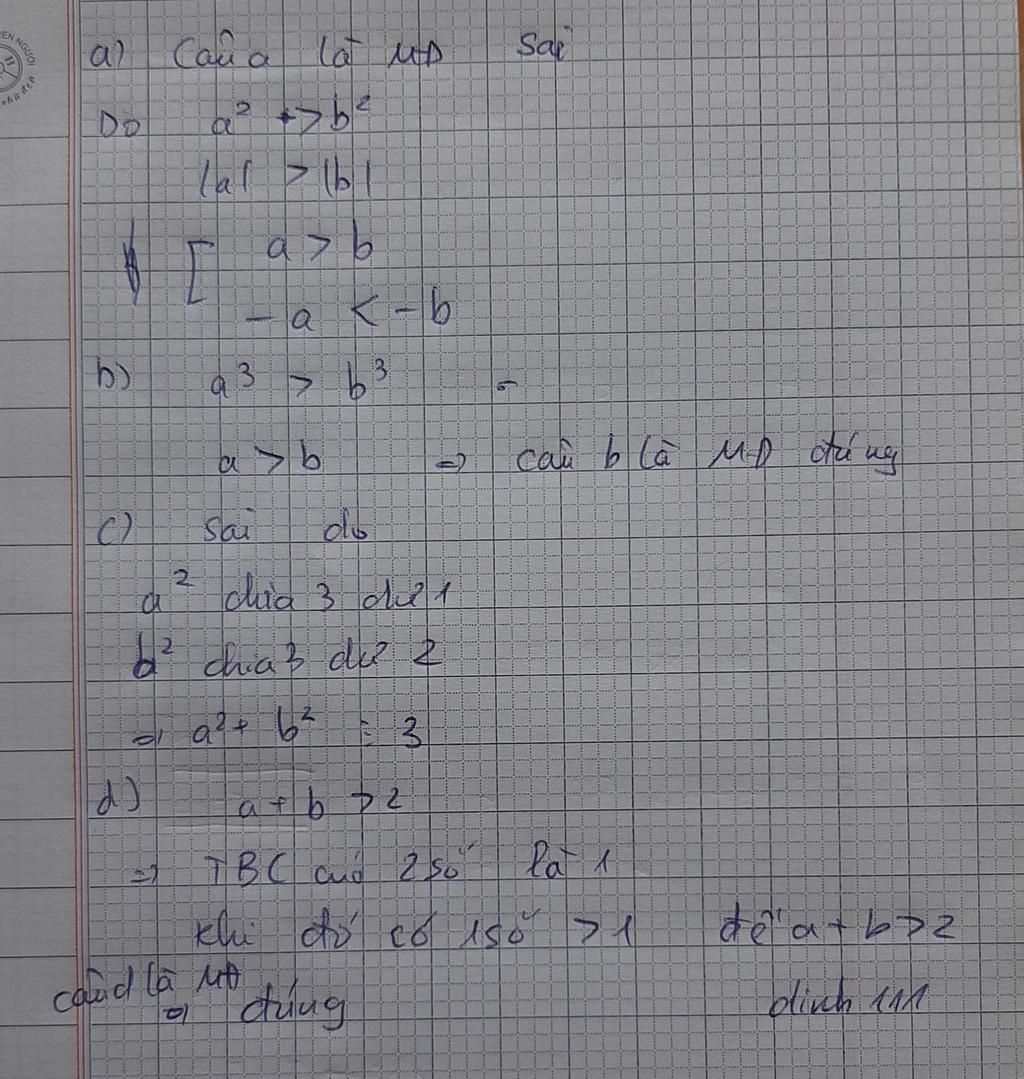 a) Câu a là MĐ sai
Do a² > b²
|a| > |b|
[ a > b
-a < -b
b) a³ > b³ -
a > b => câu b là MĐ đúng
c) sai do
a² chia 3 dư 1
b² chia 3 dư 2
=> a² + b² ⋮ 3
d) a + b > 2
=> TBC của 2 số là 1
khi đó có 1 số > 1 để a + b > 2
câu d là MĐ
=> đúng
dinh 111